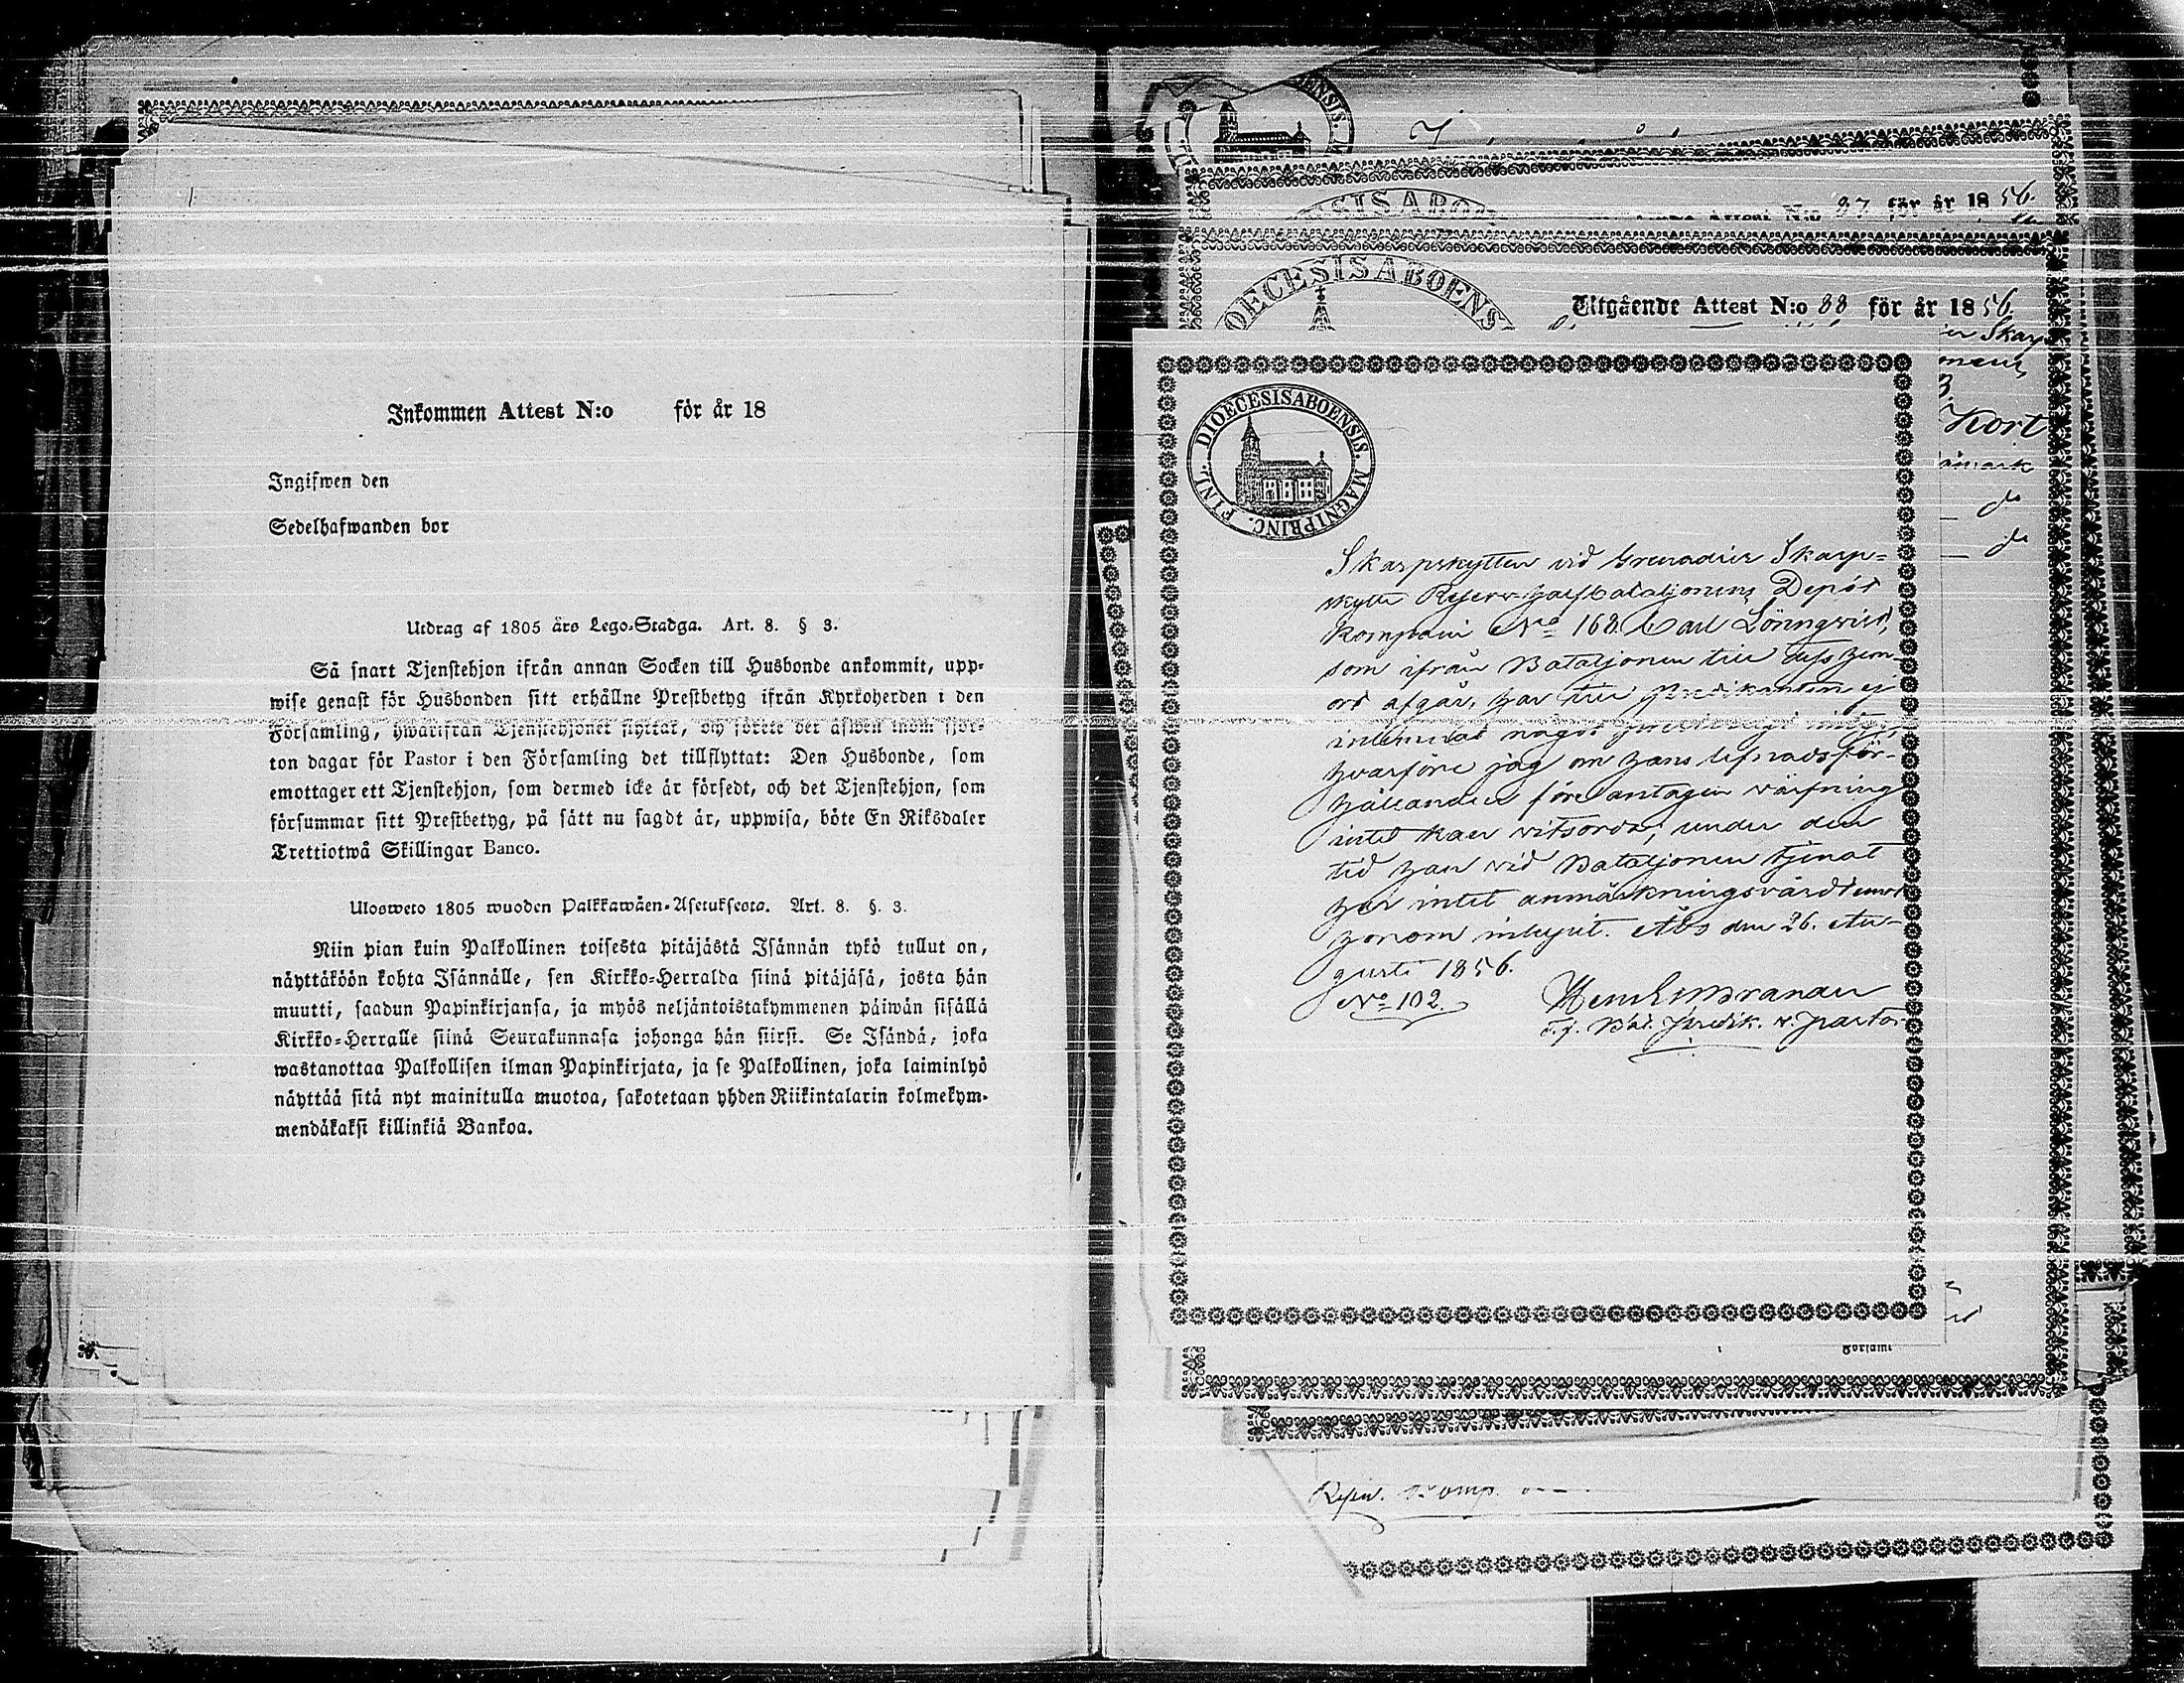 Inkommen Attest N:o för år 18
Ingifwen den
Sedelhafwanden bor
Utdrag af 1805 års Lego-Stadga. Art. 8. § 3.
Så snart Tjenstehjon ifrån annan Socken till Husbonde ankommit, upp-
wise genast för Husbonden sitt erhållne Prestbetyg ifrån Kyrkoherden i den
Församling, hwarifrån Tjenstehjonet flyttat, och förete det äfwen inom fjor-
ton dagar för Pastor i den Församling det tillflyttat: Den Husbonde, som
emottager ett Tjenstehjon, som dermed icke är försedt, och det Tjenstehjon, som
försummar sitt Prestbetyg, på sätt nu sagdt är, uppwisa, böte En Riksdaler
Trettiotwå Skillingar Banco.
Ulosweto 1805 wuoden Palkkawäen-Asetuksesta. Art. 8. §. 3.
Niin pian kuin Palkollinen toisesta pitäjästä Isännän tykö tullut on,
näyttäköön kohta Isännälle, sen Kirkko-Herralda siinä pitäjäsä, josta hän
muutti, saadun Papinkirjansa, ja myös neljäntoistakymmenen päiwän sisällä
Kirkko-Herralle siinä Seurakunnasa johonga hän siirsi. Se Isändä, joka
wastanottaa Palkollisen ilman Papinkirjata, ja se Palkollinen, joka laiminlyö
näyttää sitä nyt mainitulla muotoa, sakotetaan yhden Riikintalarin kolmekym-
mendäkaksi killinkiä Bankoa.
N:o 87 för år 1856.
DIOECESIS ABOENS
Utgående Attest N:o 88 för år 1856.
Skarp
Kort
do
do
DIOECESIS ABOENSIS. MAGNI PRINC. FINL.
Skarpskytten vid Grenadier Skarp-
skytte Reserv-halfbataljonens Depôt
Kompani No 168. Carl Lönnqvist,
som ifrån Bataljonen till dess hem-
ort afgår, har till Predikanten ej
inlemnat något
hvarföre jag om hans lefnadsför-
hållanden före antagen värfning
intet kan vitsorda; under den
tid han vid Bataljonen tjenat
har intet anmärkningsvärdt emot
honom inlupit. Åbo den 26. Au-
gusti 1856.
No 102.
Brander
T. f. Bat. Predik. v. Pastor.
Församl
Reserv. Komp.